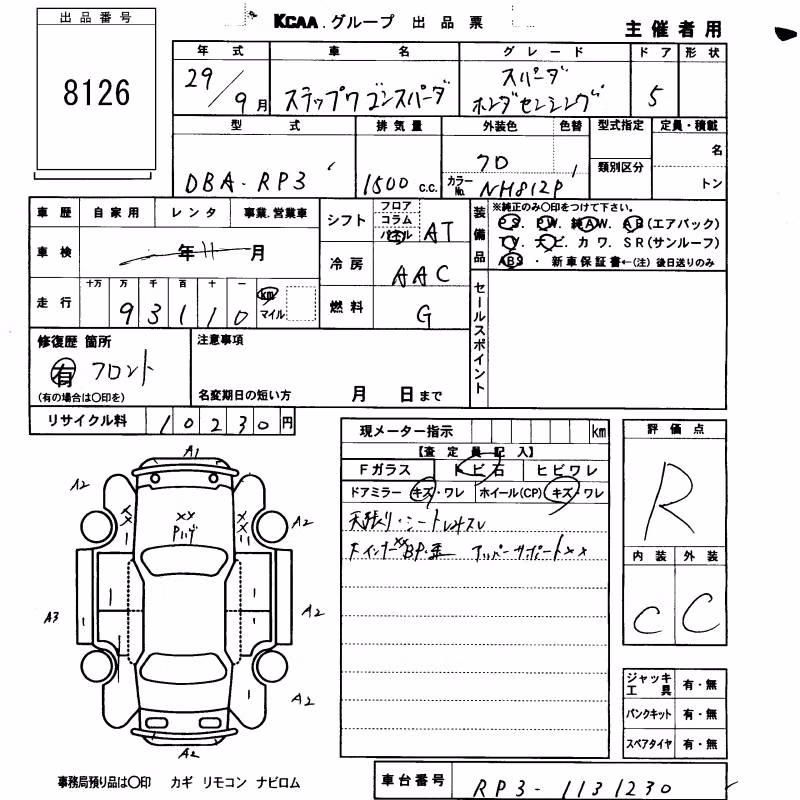 KCAA.グループ 出品票
主催者用
出品番号
8126
年式 車名 グレード ドア 形状
29/9月 ステップワゴンスパーダ スパーダ ホンダセンシング 5
型式 排気量 外装色 色替 型式指定 定員・積載
DBA-RP3 1500 c.c. 70 カラーNo. NH812P 類別区分 名
トン
車歴 自家用 レンタ 事業.営業車
車検 年 11 月
走行 十万 万 千 百 十 一
93110 km マイル
シフト フロア コラム パネル AT
冷房 AAC
燃料 G
装備品 ※純正のみ〇印をつけて下さい。
PS. PW. 純AW. AB(エアバック)
TV. ナビ. カワ. SR(サンルーフ)
ABS ・ 新車保証書←(注) 後日送りのみ
セールスポイント
修復歴 箇所
有 フロント
(有の場合は〇印を)
注意事項
名変期日の短い方 月 日まで
リサイクル料 10230円
現メーター指示 km
【査定員記入】
Fガラス トビ石 ヒビワレ
ドアミラー キズ・ワレ ホイール(CP) キズ・ワレ
天張り・シート
アッパーサポート××
評価点
R
内装 外装
C C
ジャッキ 工具 有・無
パンクキット 有・無
スペアタイヤ 有・無
A1
A2
A2
×× ×× ××
Pハゲ
A3
A2
A2
A2
事務局預り品は〇印 カギ リモコン ナビロム
車台番号 RP3-1131230